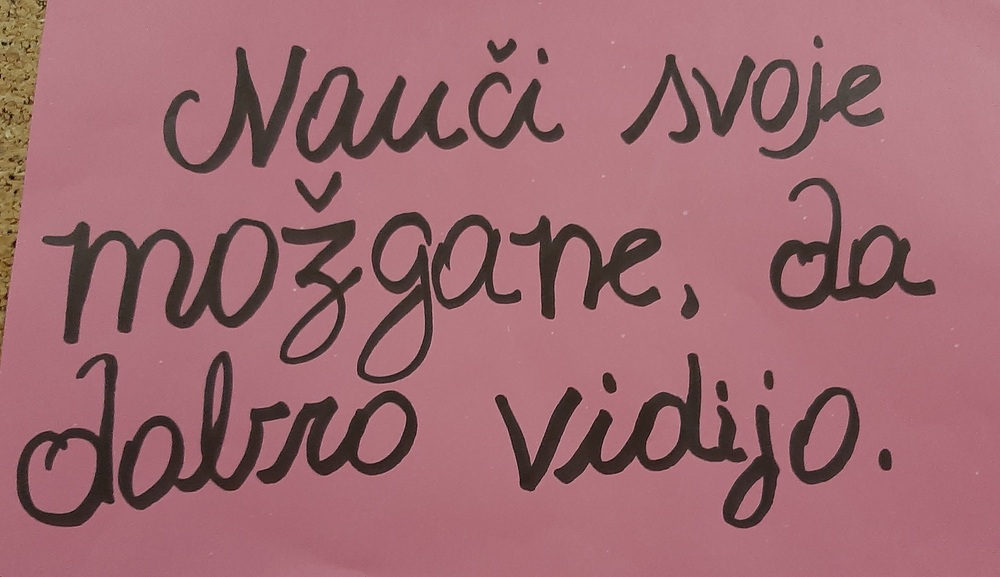 Nauči svoje
možgane, da
dobro vidijo.